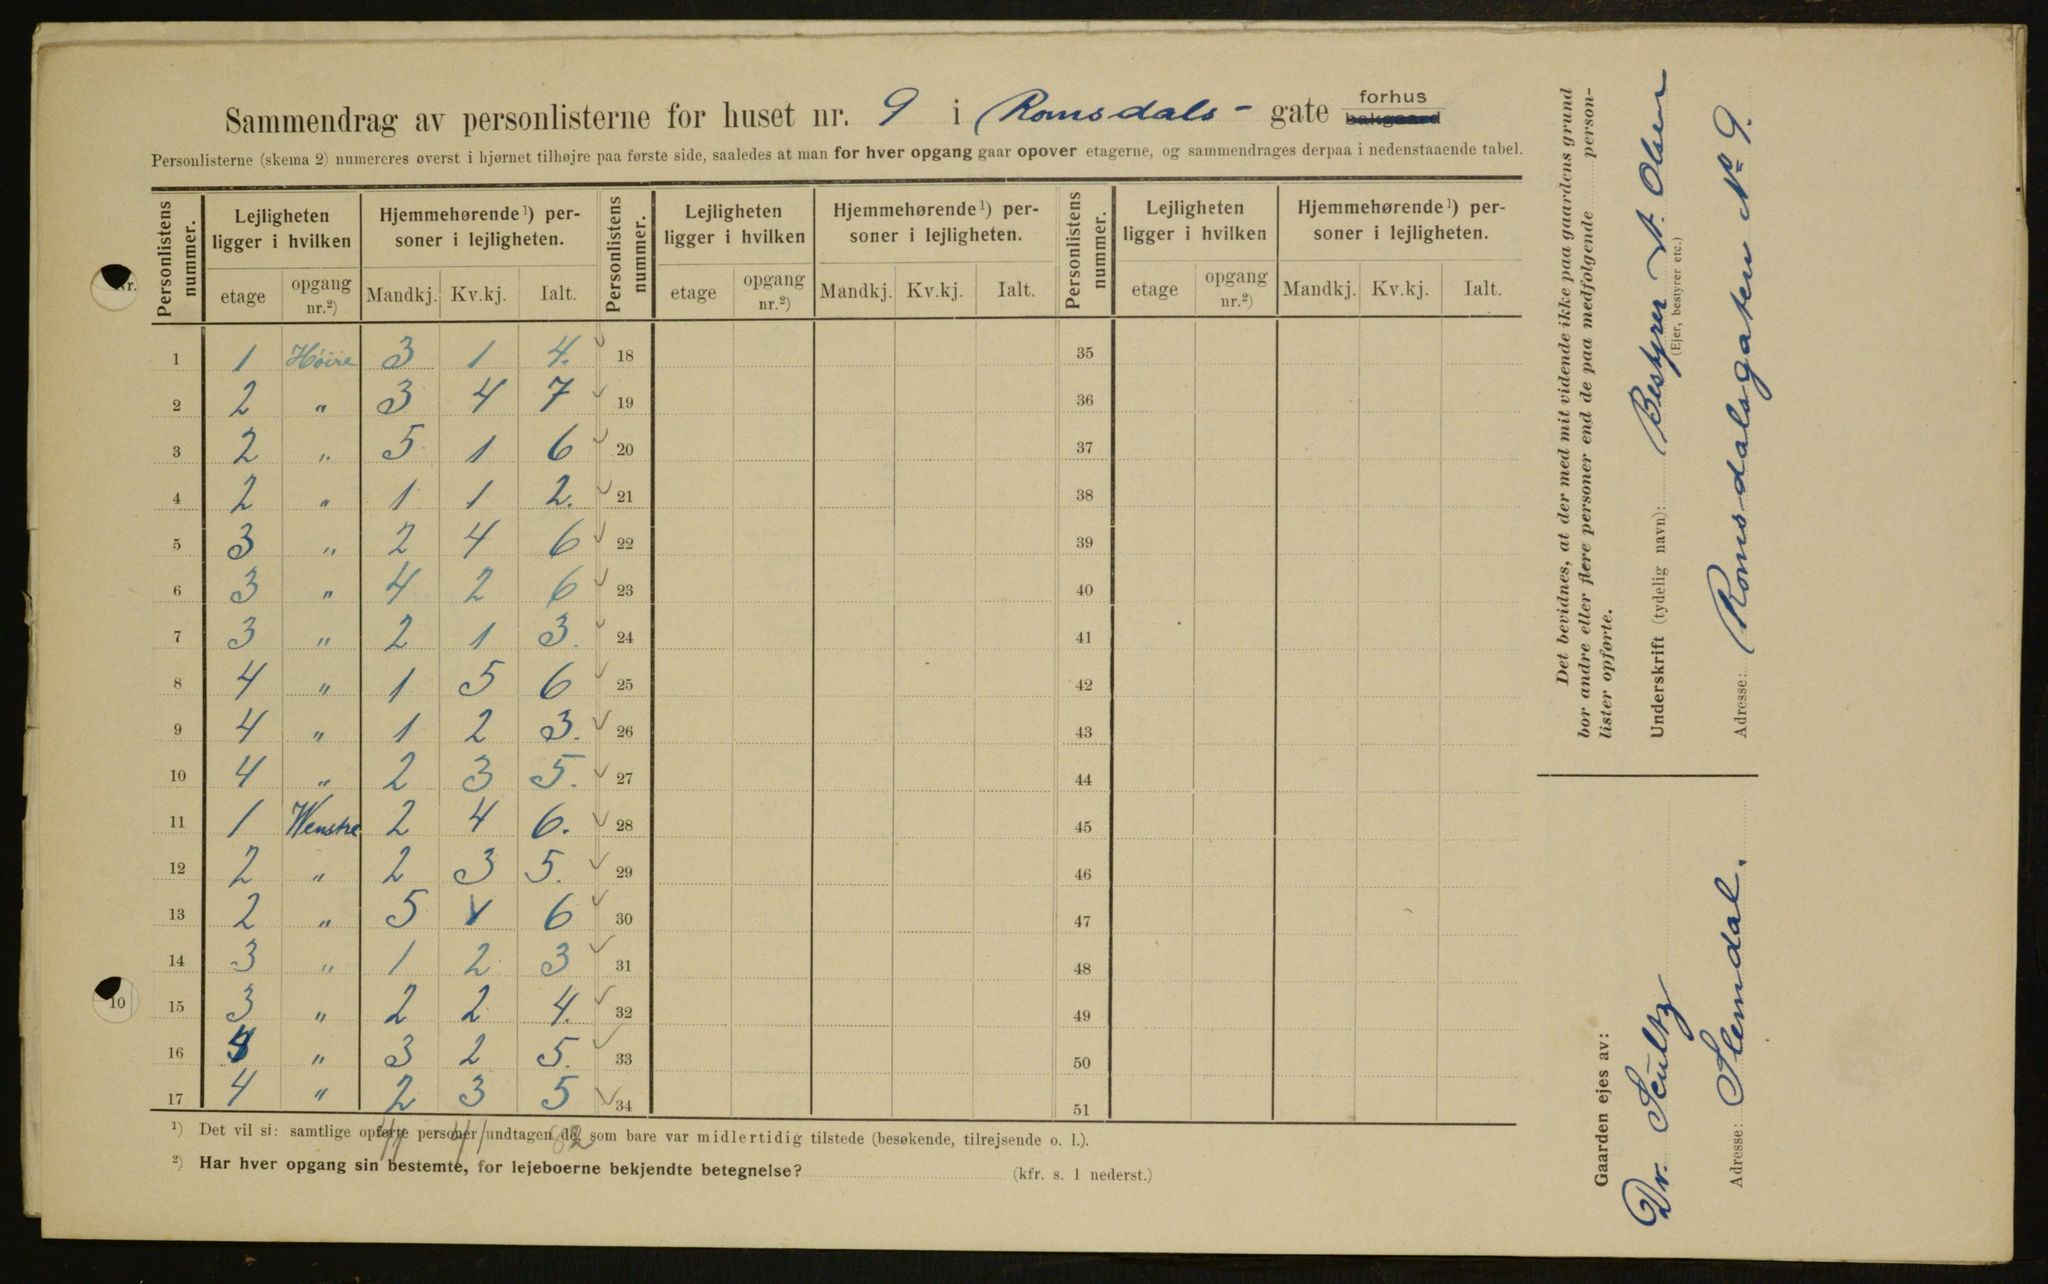 Sammendrag av personlisterne for huset nr. 9 i Romsdals- gate forhus bakgaard
Personlisterne (skema 2) numereres øverst i hjørnet tilhøjre paa første side, saaledes at man for hver opgang gaar opover etagerne, og sammendrages derpaa i nedenstaaende tabel.
Personlistens nummer. Lejligheten ligger i hvilken Hjemmehørende 1) personer i lejligheten. Personlistens nummer. Lejligheten ligger i hvilken Hjemmehørende 1) personer i lejligheten. Personlistens nummer. Lejligheten ligger i hvilken Hjemmehørende 1) personer i lejligheten.
etage opgang nr.2) Mandkj. Kv.kj. Ialt. etage opgang nr.2) Mandkj. Kv.kj. Ialt. etage opgang nr.2) Mandkj. Kv.kj. Ialt.
1 1 Høire 3 1 4. 18 35
2 2 " 3 4 7 19 36
3 2 " 5 1 6 20 37
4 2 " 1 1 2. 21 38
5 3 " 2 4 6 22 39
6 3 " 4 2 6 23 40
7 3 " 2 1 3. 24 41
8 4 " 1 5 6 25 42
9 4 " 1 2 3. 26 43
10 4 " 2 3 5. 27 44
11 1 Wenstre 2 4 6. 28 45
12 2 " 2 3 5. 29 46
13 2 " 5 1 6 30 47
14 3 " 1 2 3 31 48
15 3 " 2 2 4. 32 49
16 4 " 3 2 5. 33 50
17 4 " 2 3 5 34 51
1) Det vil si: samtlige opførte personer undtagen de som bare var midlertidig tilstede (besøkende, tilrejsende o. l.).
41 41 82
2) Har hver opgang sin bestemte, for lejeboerne bekjendte betegnelse? (kfr. s. 1 nederst.)
Nr.
10
Det bevidnes, at der med mit vidende ikke paa gaardens grund
bor andre eller flere personer end de paa medfølgende personlister opførte.
Underskrift (tydelig navn): Bestyrer A. Olsen
(Ejer, bestyrer etc.)
Adresse: Romsdalsgaten No 9.
Gaarden ejes av:
Dr. Scultz
Adresse: Slemdal.